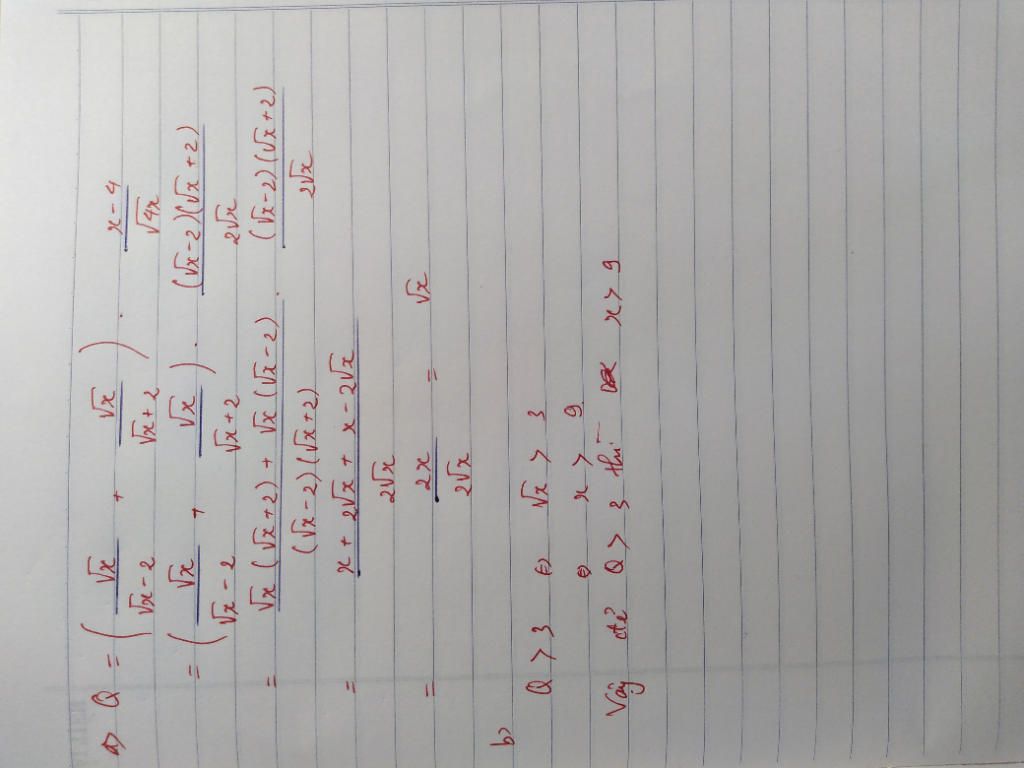 a) Q = (√x/(√x-2) + √x/(√x+2)) . (x-4)/√4x
= (√x/(√x-2) + √x/(√x+2)) . (√x-2)(√x+2)/2√x
= (√x(√x+2) + √x(√x-2))/((√x-2)(√x+2)) . (√x-2)(√x+2)/2√x
= (x + 2√x + x - 2√x)/2√x
= 2x/2√x = √x
b)
Q > 3 ⇔ √x > 3
⇔ x > 9
Vậy để Q > 3 thì x > 9